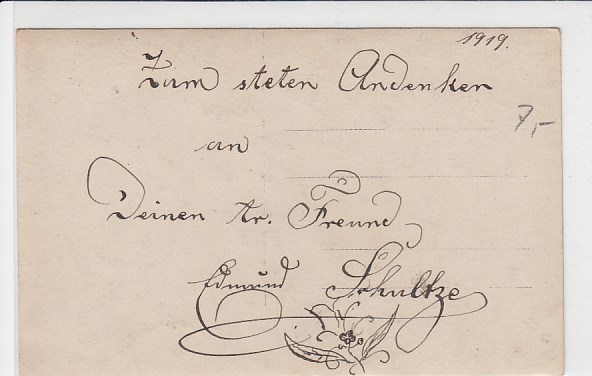 1919.
Zum steten Andenken
7,-
an
Deinen tr. Freund
Edmund Schultze